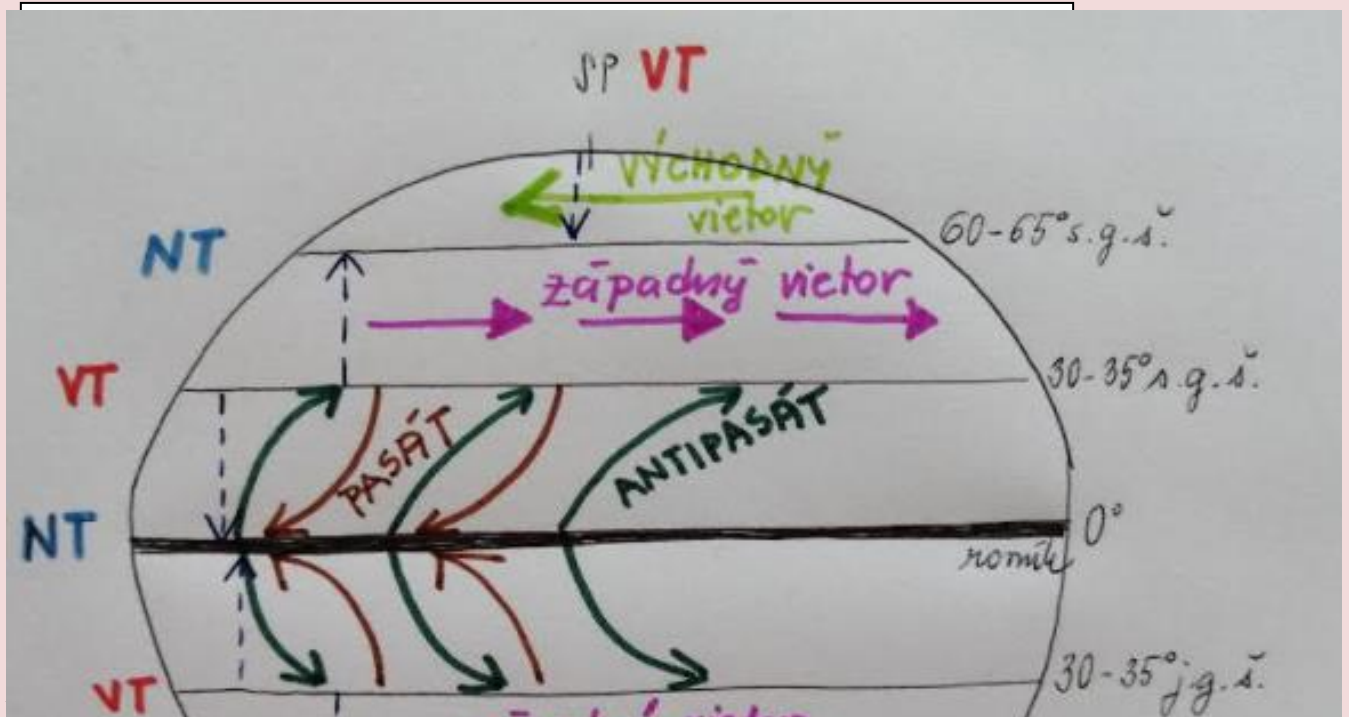 SP VT
VÝCHODNÝ
vietor
60-65° s.g.š.
NT
západný vietor
30-35° s.g.š.
VT
PASÁT
ANTIPASÁT
NT
0°
rovník
30-35° j.g.š.
VT